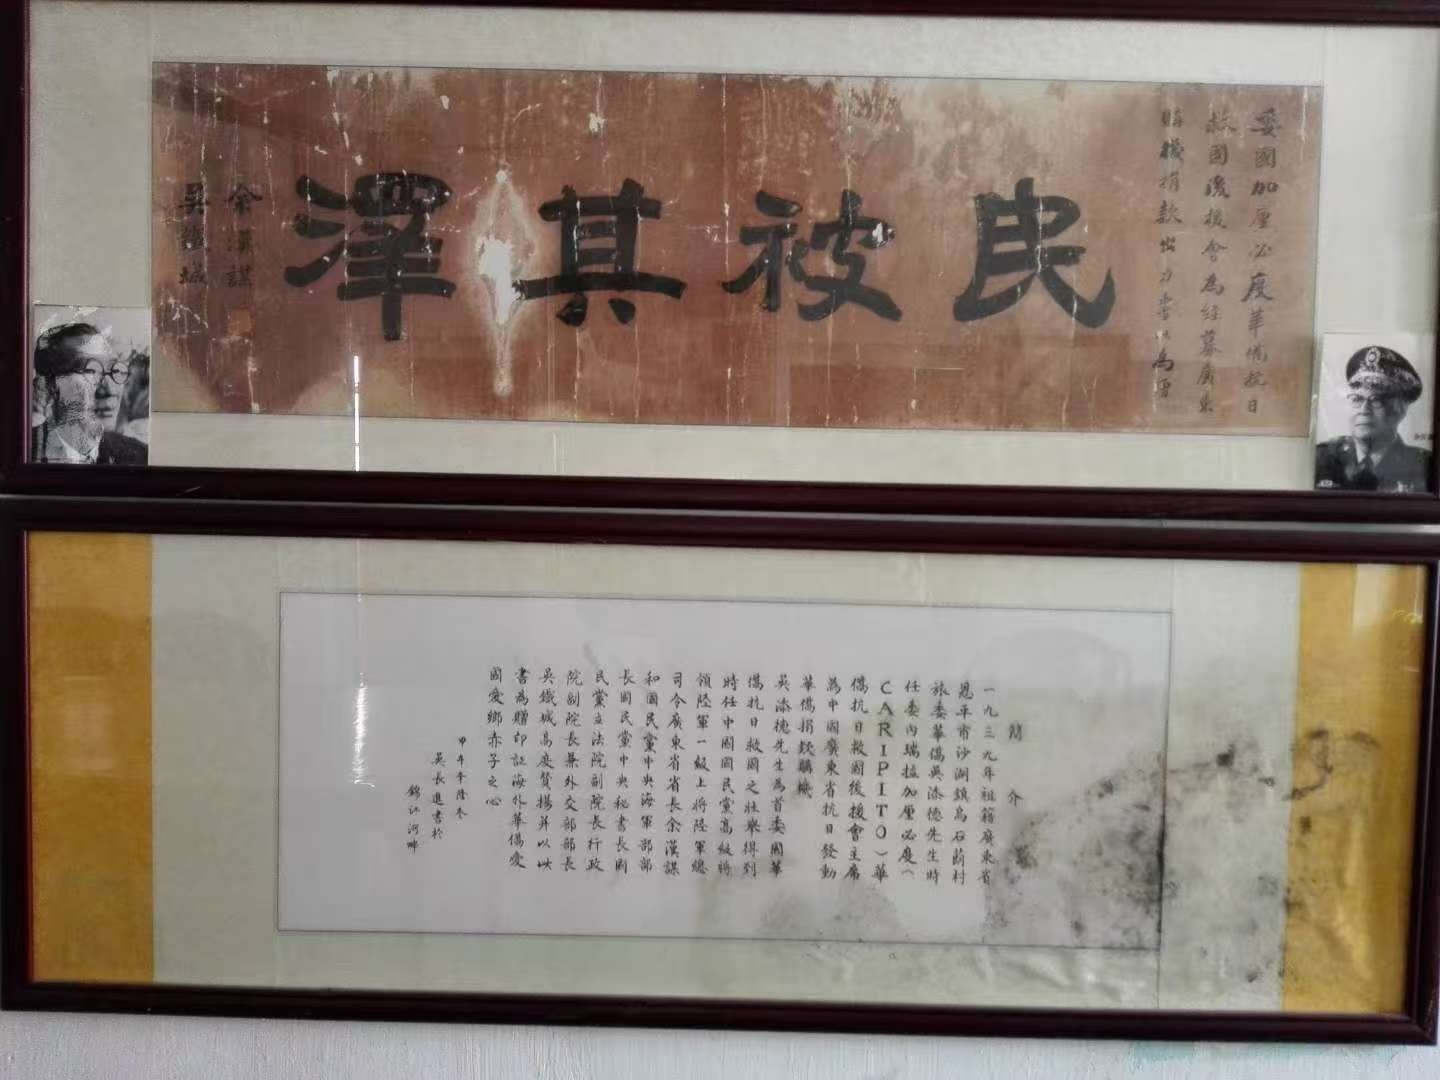 委國加厘必度華僑抗日
救國後援會為經募廣東
購機捐款出力書此為晉
民被其澤
余漢謀
吳鐵城
簡介
一九三九年祖籍廣東省
恩平市沙湖鎮烏石蓢村
旅委華僑吳添德先生時
任委內瑞拉加厘必度（
CARIPITO）華
僑抗日救國後援會主席
為中國廣東省抗日發動
華僑捐錢購機
吳添德先生為首委國華
僑抗日救國之壯舉得到
時任中國國民黨高級將
領陸軍一級上將陸軍總
司令廣東省省長余漢謀
和國民黨中央海軍部部
長國民黨中央秘書長國
民黨立法院副院長行政
院副院長兼外交部部長
吳鐵城高度贊揚并以此
書為贈印証海外華僑愛
國愛鄉赤子之心
甲午年隆冬
吳長進書於
錦江河畔